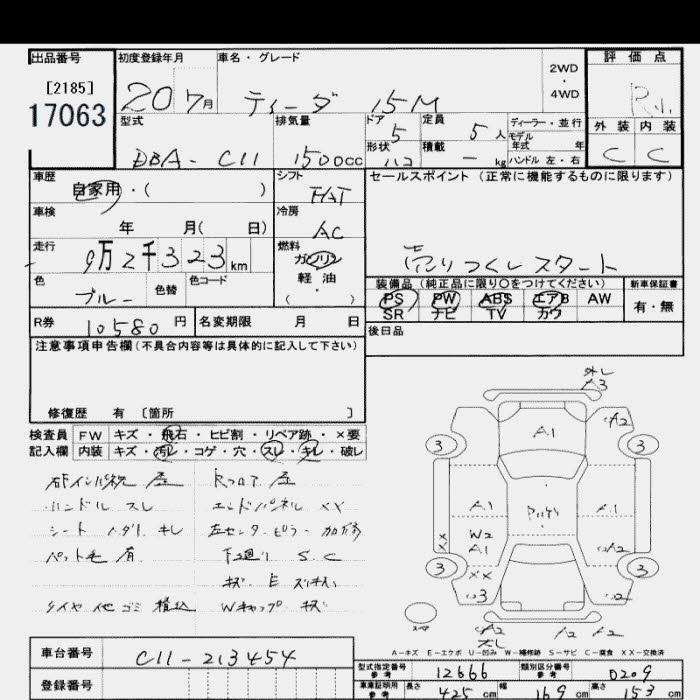 出品番号
[2185]
17063
初度登録年月
20 7月
車名・グレード
ティーダ 15M
2WD
・
4WD
評価点
外装 内装
C C
型式
DBA-C11
排気量
1500cc
ドア
5
形状
定員
5人
積載
－ kg
ディーラー・並行
モデル
年式 年
ハンドル 左・右
車歴
自家用・( )
シフト
FAT
車検
年 月( 日)
冷房
AC
走行
9万2千323km
燃料
ガソリン
・
軽油
( )
色
ブルー
色替
色コード
セールスポイント (正常に機能するものに限ります)
売りつくしスタート
装備品 (純正品に限り○をつけてください)
PS PW ABS エアB AW
SR ナビ TV カワ
新車保証書
有・無
R券
10580円
名変期限 月 日
後日品
注意事項申告欄 (不具合内容等は具体的に記入して下さい)
修復歴 有 〔箇所 〕
検査員 FW キズ・飛石・ヒビ割・リペア跡・×要
記入欄 内装 キズ・汚レ・コゲ・穴・スレ・キレ・破レ
ハンドル スレ
エンドパネル XX
シート キレ
左センターピラー
ペット毛 有
下廻り S.C
タイヤ他ゴミ積込
Wキャップ キズ
A3
A2
A1
3 3
A1 A1
W2
A1
A2
XX
3 3
A2 A2
A－キズ E－エクボ U－凹み W－補修跡 S－サビ C－腐食 XX－交換済
車台番号
C11-213454
登録番号
型式指定番号
参考
12666
類別区分番号
参考
0209
車庫証明用
参考
長さ 425 cm 幅 169 cm 高さ 153 cm